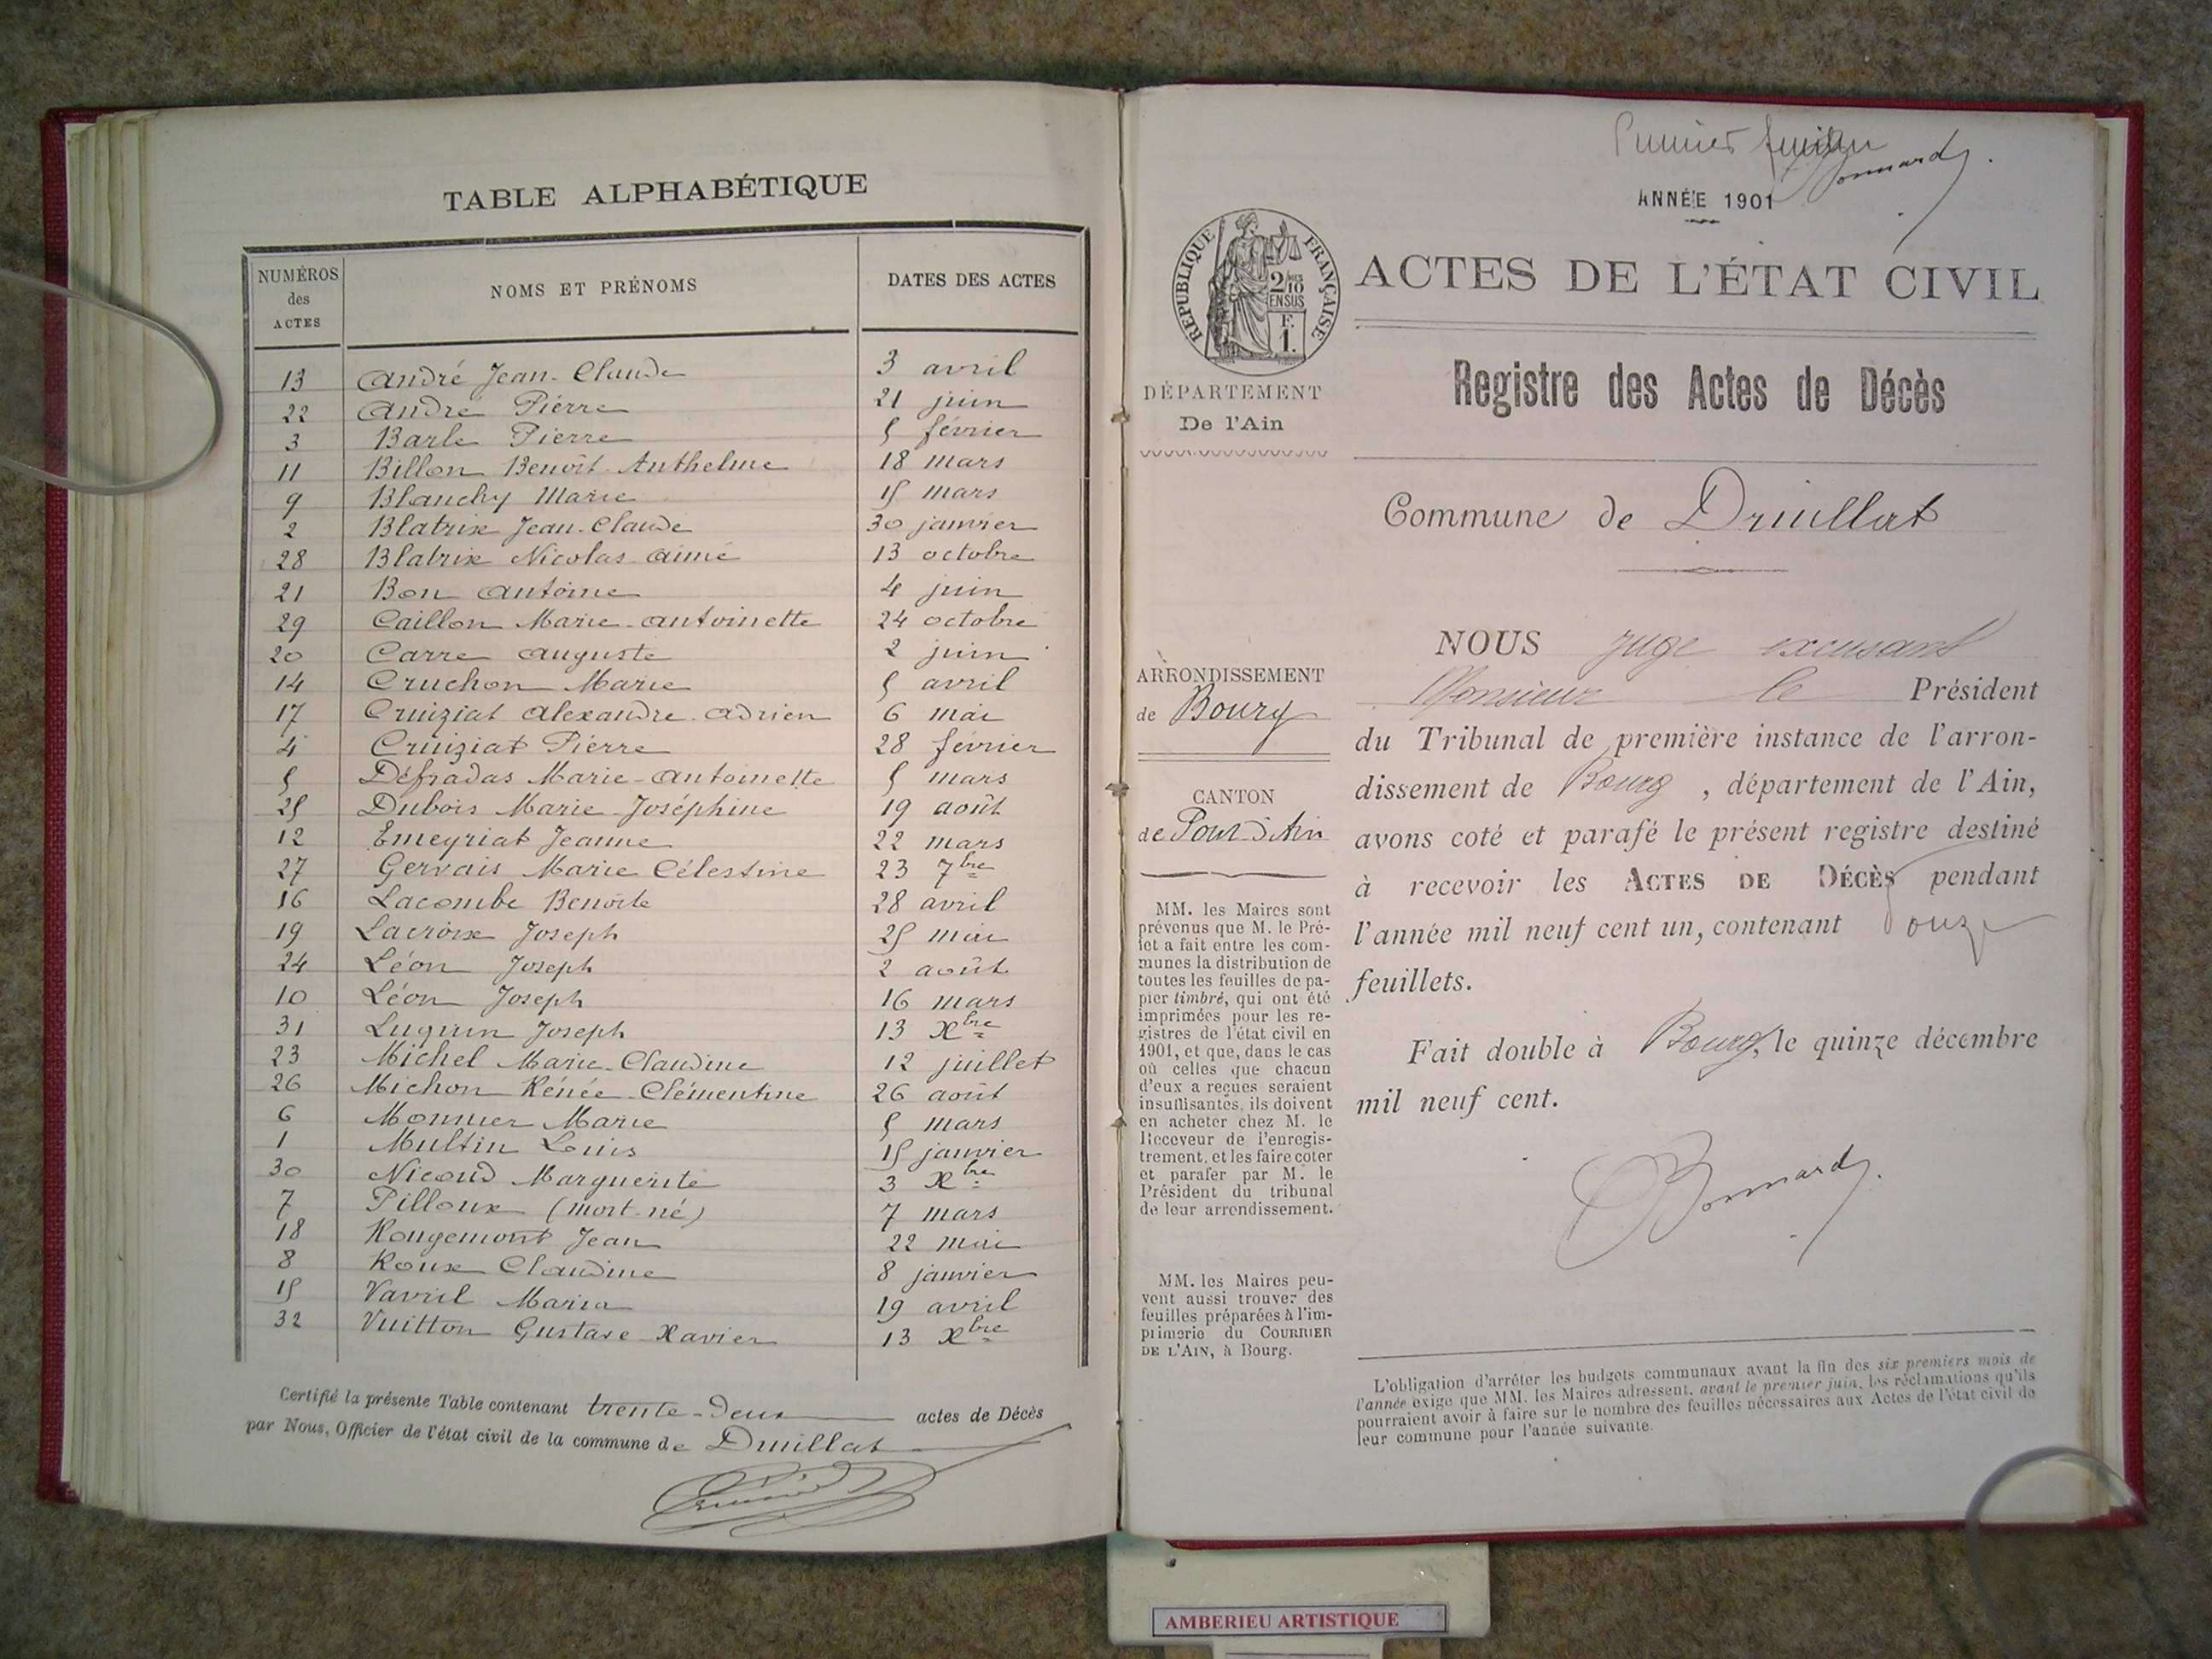 TABLE ALPHABÉTIQUE
NUMÉROS des ACTES NOMS ET PRÉNOMS DATES DES ACTES
13 André Jean-Claude 3 avril
22 André Pierre 21 juin
3 Barle Pierre 5 février
11 Billon Benoît-Anthelme 18 mars
9 Blanchy Marie 15 mars
2 Blatrix Jean-Claude 30 janvier
28 Blatrix Nicolas-Aimé 13 octobre
21 Bon Antoine 4 juin
29 Caillon Marie-Antoinette 24 octobre
20 Carre Auguste 2 juin
14 Cruchon Marie 5 avril
17 Cruiziat Alexandre-Adrien 6 mai
4 Cruiziat Pierre 28 février
5 Défradas Marie-Antoinette 5 mars
25 Dubois Marie-Joséphine 19 août
12 Emeyriat Jeanne 22 mars
27 Gervais Marie Célestine 23 7bre
16 Lacombe Benoîte 28 avril
19 Lacroix Joseph 25 mai
24 Léon Joseph 2 août
10 Léon Joseph 16 mars
31 Luquin Joseph 13 Xbre
23 Michel Marie-Claudine 12 juillet
26 Michon Rénée-Clémentine 26 août
6 Monnier Marie 5 mars
1 Multin Louis 15 janvier
30 Nicoud Marguerite 3 Xbre
7 Pilloux (mort-né) 7 mars
18 Rougemont Jean 22 mai
8 Roux Claudine 8 janvier
15 Vavril Maria 19 avril
32 Vuitton Gustave-Xavier 13 Xbre
Certifié la présente Table contenant trente-deux actes de Décès
par Nous, Officier de l'état civil de la commune de Druillat
Premier feuillet
Bonnard
ANNÉE 1901
RÉPUBLIQUE FRANÇAISE
2/10 EN SUS
F. 1.
ACTES DE L'ÉTAT CIVIL
Registre des Actes de Décès
DÉPARTEMENT
De l'Ain
Commune de Druillat
ARRONDISSEMENT
de Bourg
CANTON
de Pont-d'Ain
MM. les Maires sont
prévenus que M. le Pré-
fet a fait entre les com-
munes la distribution de
toutes les feuilles de pa-
pier timbré, qui ont été
imprimées pour les re-
gistres de l'état civil en
1901, et que, dans le cas
où celles que chacun
d'eux a reçues seraient
insuffisantes, ils doivent
en acheter chez M. le
Receveur de l'enregis-
trement, et les faire coter
et parafer par M. le
Président du tribunal
de leur arrondissement.
MM. les Maires peu-
vent aussi trouver des
feuilles préparées à l'im-
primerie du COURRIER
DE L'AIN, à Bourg.
NOUS juge excusant
Monsieur le Président
du Tribunal de première instance de l'arron-
dissement de Bourg, département de l'Ain,
avons coté et parafé le présent registre destiné
à recevoir les ACTES DE DÉCÈS pendant
l'année mil neuf cent un, contenant douze
feuillets.
Fait double à Bourg, le quinze décembre
mil neuf cent.
Bonnard
L'obligation d'arrêter les budgets communaux avant la fin des six premiers mois de
l'année exige que MM. les Maires adressent, avant le premier juin, les réclamations qu'ils
pourraient avoir à faire sur le nombre des feuilles nécessaires aux Actes de l'état civil de
leur commune pour l'année suivante.
AMBERIEU ARTISTIQUE